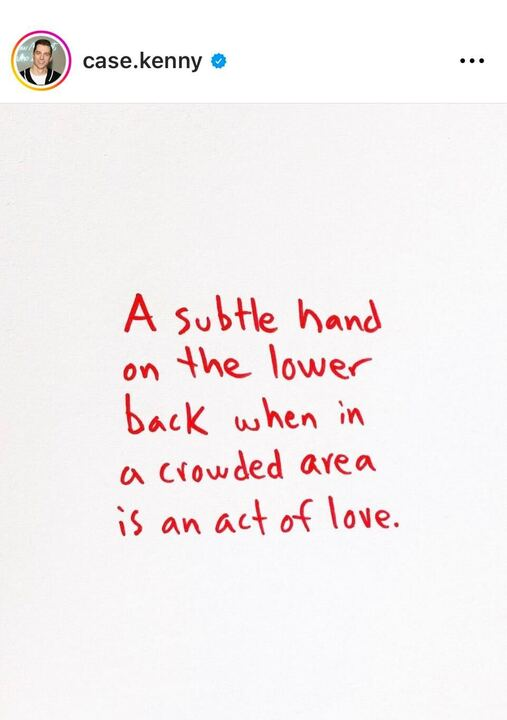 case.kenny
A subtle hand
on the lower
back when in
a crowded area
is an act of love.